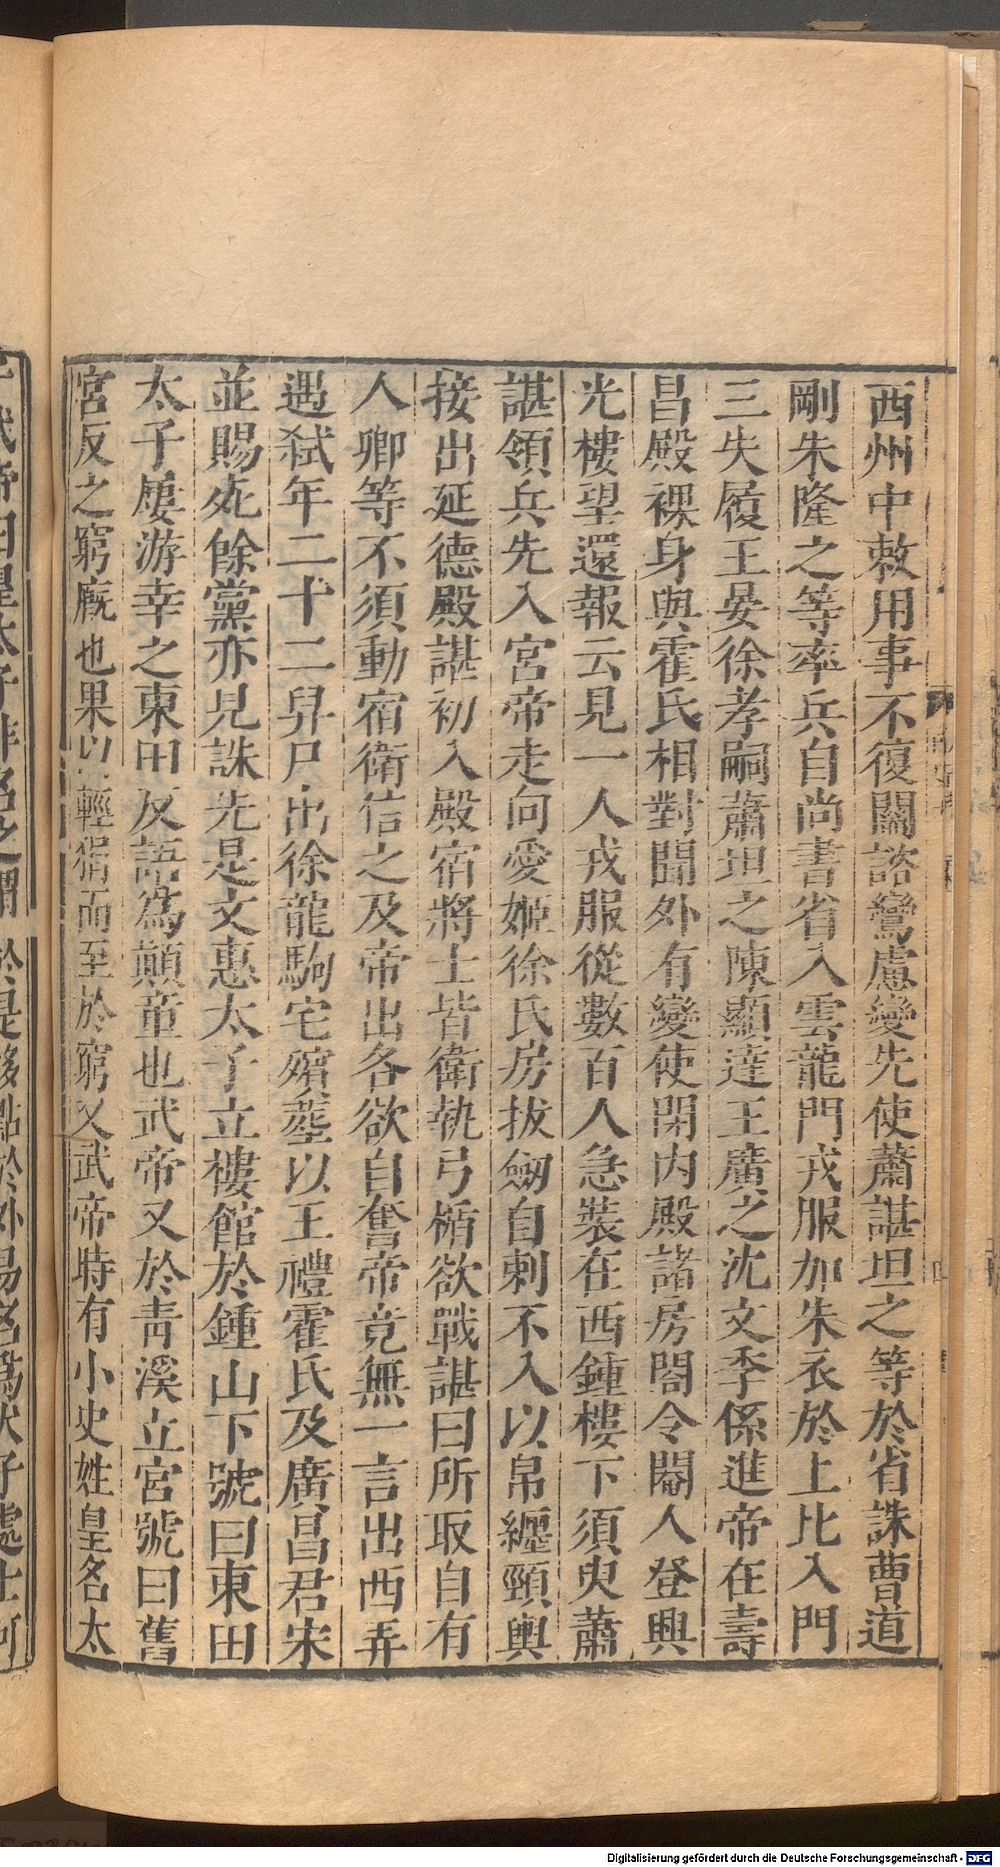 西州中敕用事不復關諮鸞慮變先使蕭諶坦之等於省誅曹道
剛朱隆之等率兵自尚書省入雲龍門戎服加朱衣於上比入門
三失履王晏徐孝嗣蕭坦之陳顯達王廣之沈文季係進帝在壽
昌殿裸身與霍氏相對聞外有變使閉內殿諸房閤令閹人登興
光樓望還報云見一人戎服從數百人急裝在西鍾樓下須臾蕭
諶領兵先入宮帝走向愛姬徐氏房拔劒自刺不入以帛纏頸輿
接出延德殿諶初入殿宿將士皆衛執弓楯欲戰諶曰所取自有
人卿等不須動宿衛信之及帝出各欲自奮帝竟無一言出西弄
遇弒年二十二舁尸出徐龍駒宅殯葬以王禮霍氏及廣昌君宋
並賜死餘黨亦見誅先是文惠太子立樓館於鍾山下號曰東田
太子屢游幸之東田反語為顛童也武帝又於青溪立宮號曰舊
宮反之窮廐也果以輕狷而至於窮又武帝時有小史姓皇名太
於是移點於外易名為犬子處士何
Digitalisierung gefördert durch die Deutsche Forschungsgemeinschaft - DFG